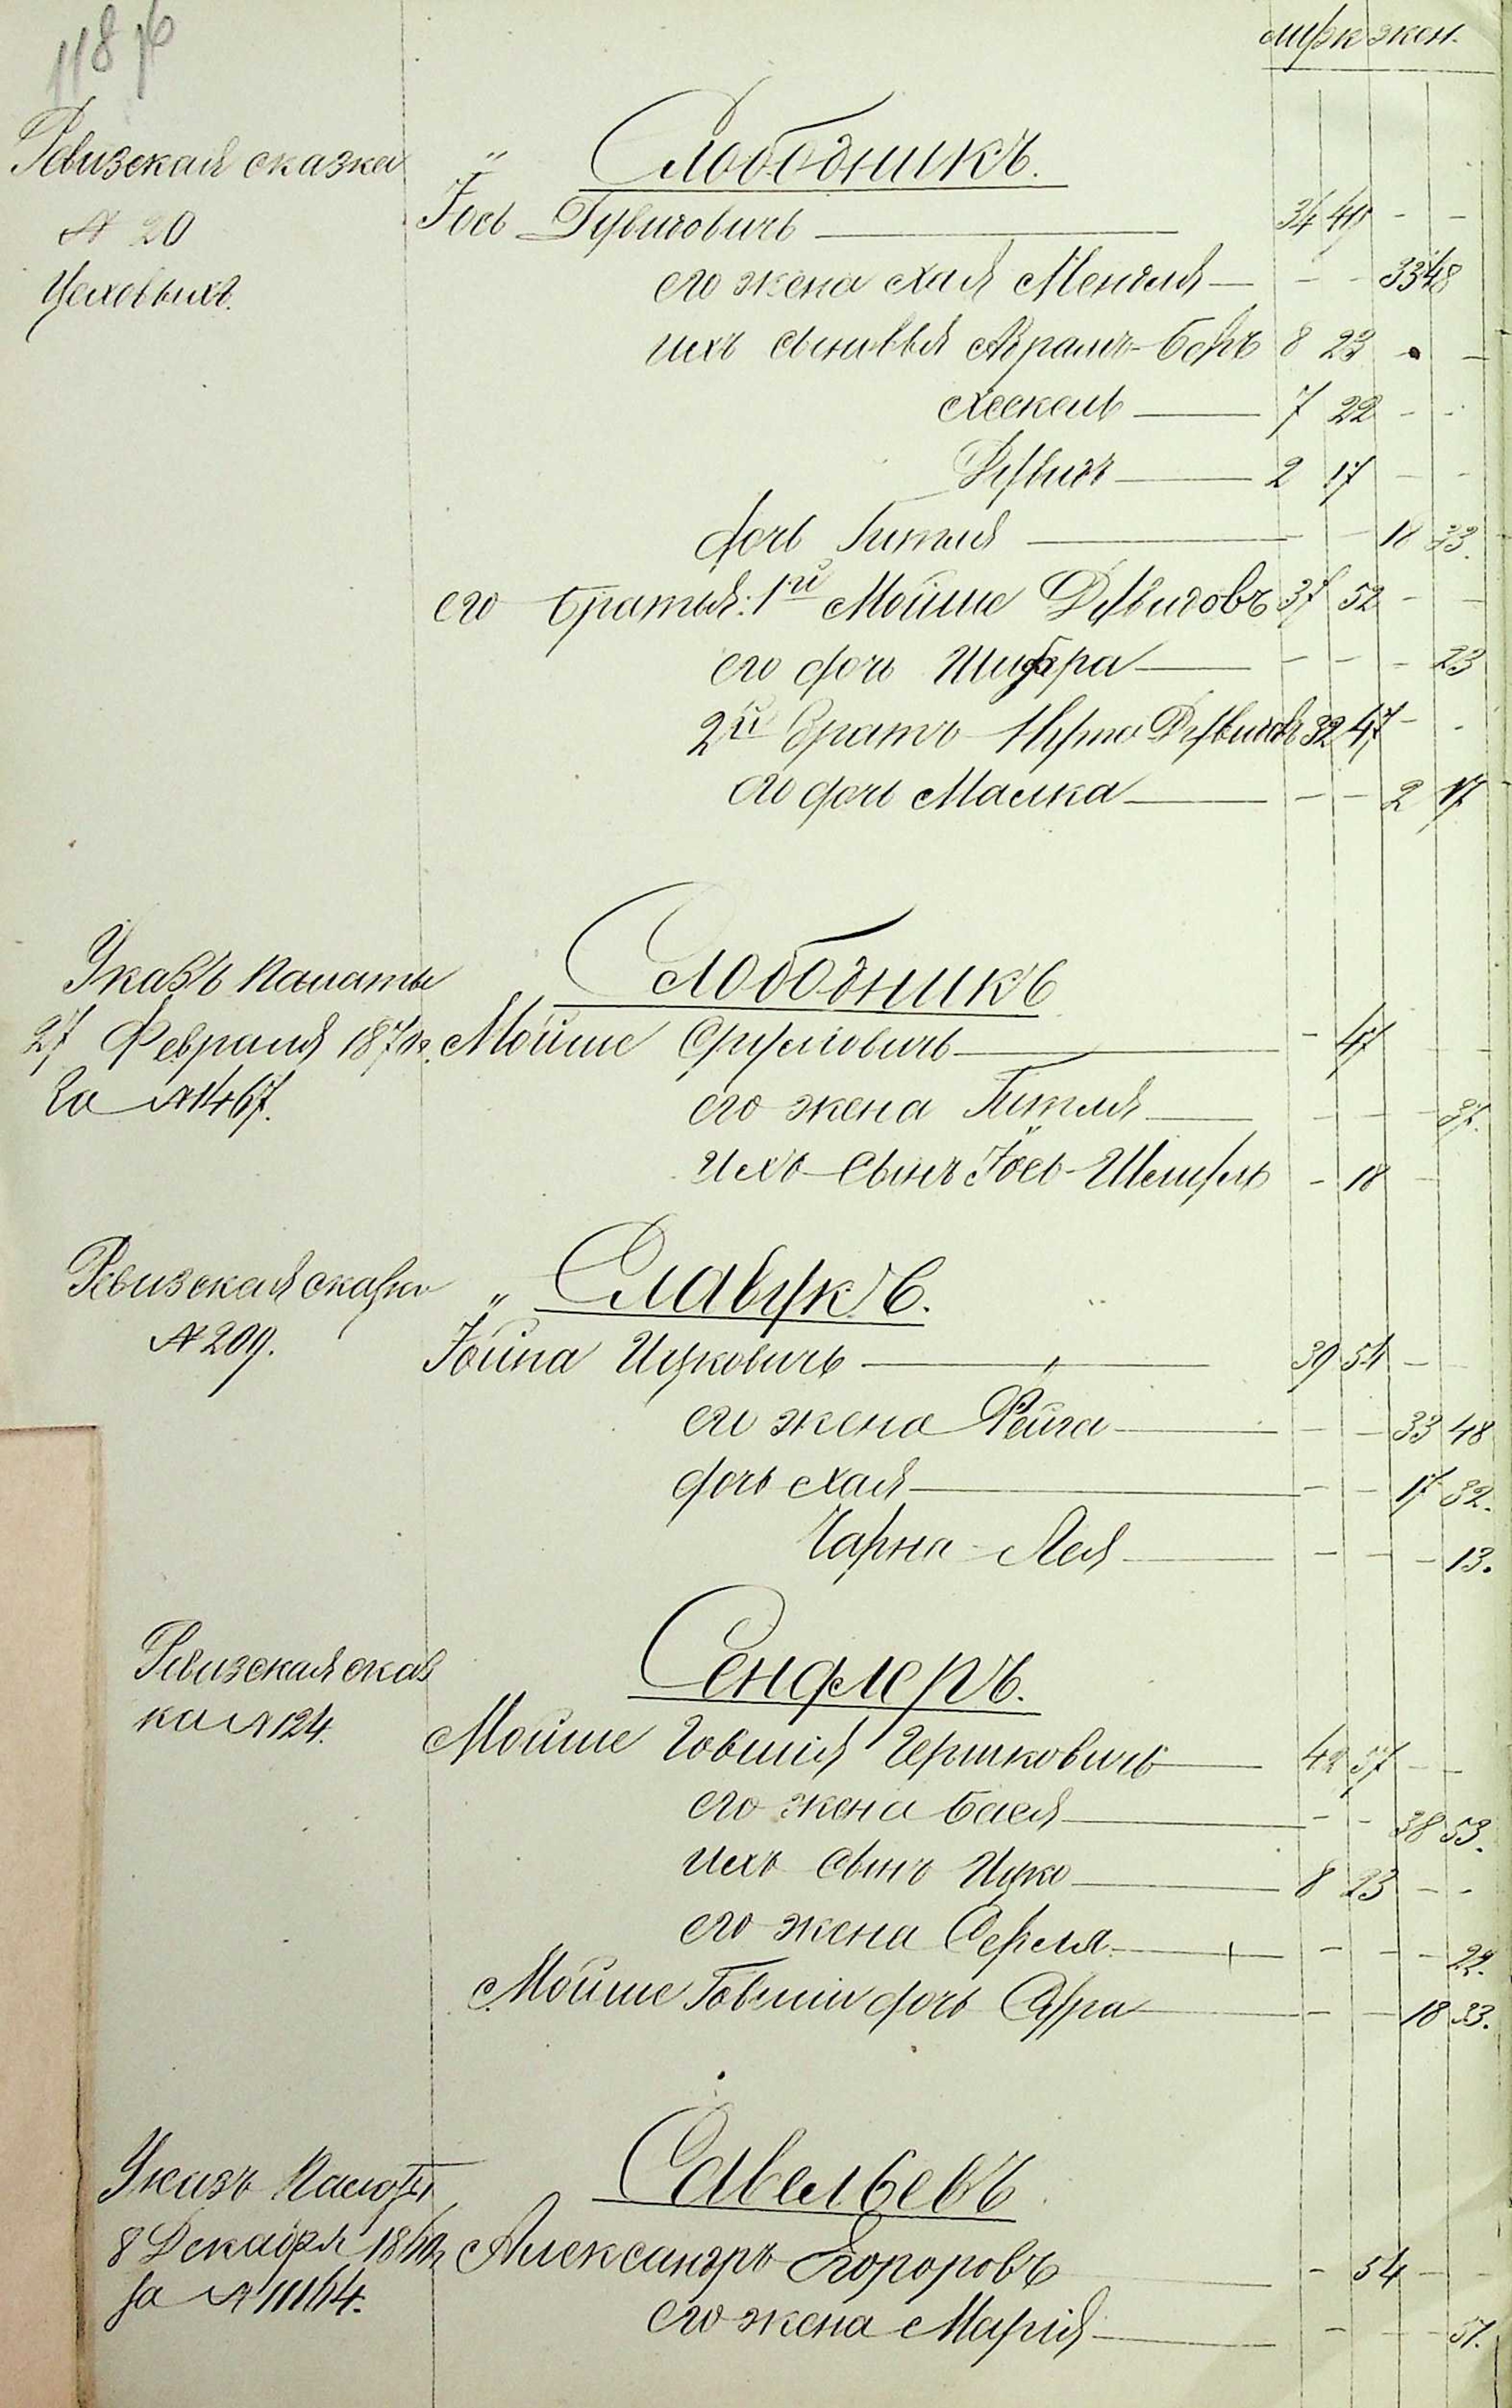 118
мужк жен.
Ревизская сказка
№ 20
Цеховыхъ.
Слободникъ.
Іось Дувидовичъ 34 49 - -
его жена Хая Менеля - - 33 48
ихъ сыновья Абрамъ-Беръ 8 23 - -
Хескель 7 22 - -
Дувидъ 2 17 - -
дочь Гитля - - 18 33.
его братья: 1й Мойше Дувидовъ 37 52 - -
его дочь Шифра - - - 23
2й братъ Нута Дувидовъ 32 47 - -
его дочь Малка - - 2 17
Указъ Палаты
27 Февраля 187
За №1467.
Слободникъ
Мойше Срулювичъ - 47 - -
его жена Гитля - - -
ихъ сынъ Іось-Шмуль - 18 -
Ревизская сказка
№ 209.
Славукъ.
Іойна Ицковичъ 39 54 - -
его жена Фейга - - 33 48
дочь Хая - - 17 32.
Чарна-Лея - - - 13.
Ревизская сказ
ка №124.
Сендлеръ.
Мойше Говшія Гершковичъ 42 57 - -
его жена Бася - - 38 53.
ихъ сынъ Ицко 8 23 - -
его жена Серля - - -
Мойше Говшіи дочь Сура - - 18 33.
Указъ Палаты
8 Декабря 18
за №11164.
Савельевъ
Александръ - 54 - -
его жена Марія - - - 51.